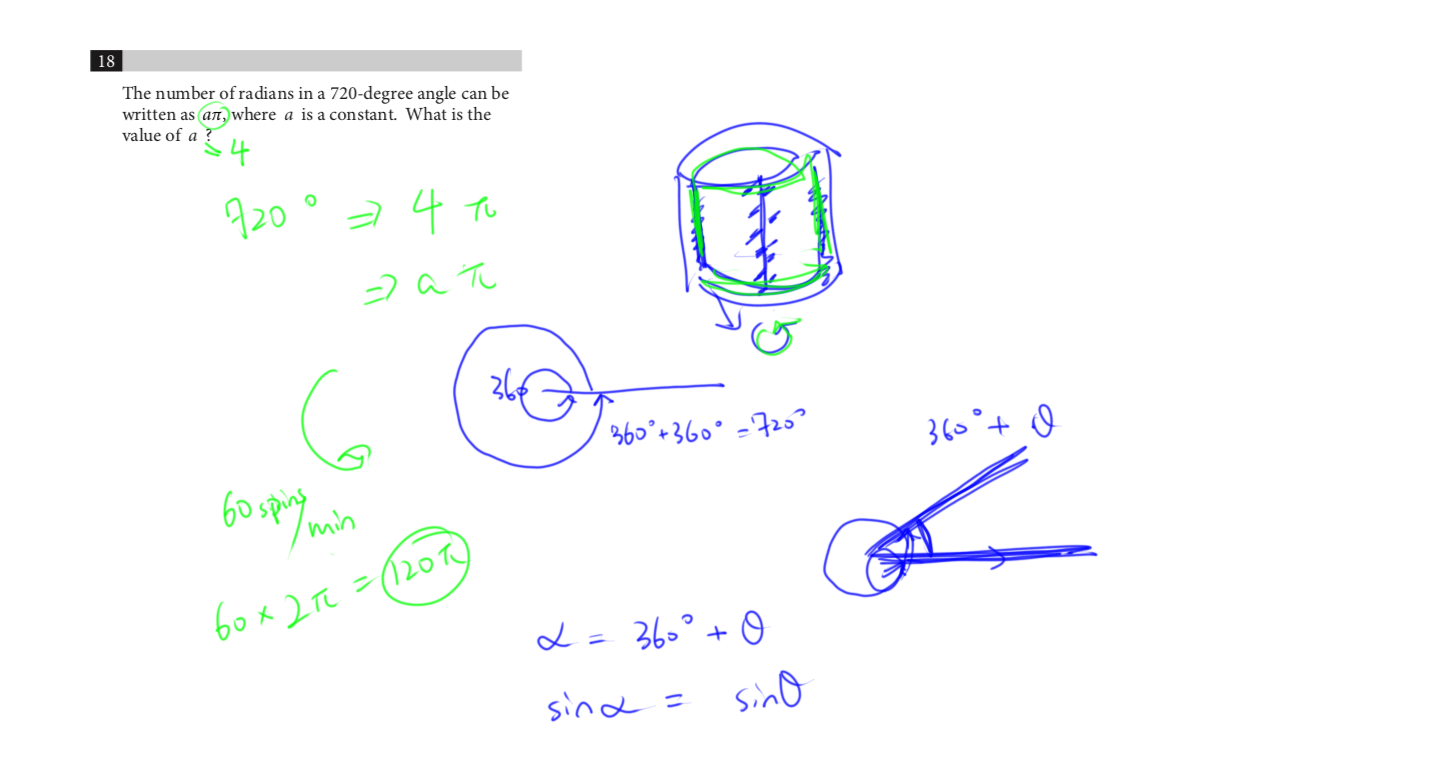 18
The number of radians in a 720-degree angle can be
written as aπ, where a is a constant. What is the
value of a ?
⇒ 4
720° ⇒ 4 π
⇒ a π
360
360°+360° = 720°
360° + θ
60 spins/min
60 × 2π = 120π
α = 360° + θ
sinα = sinθ